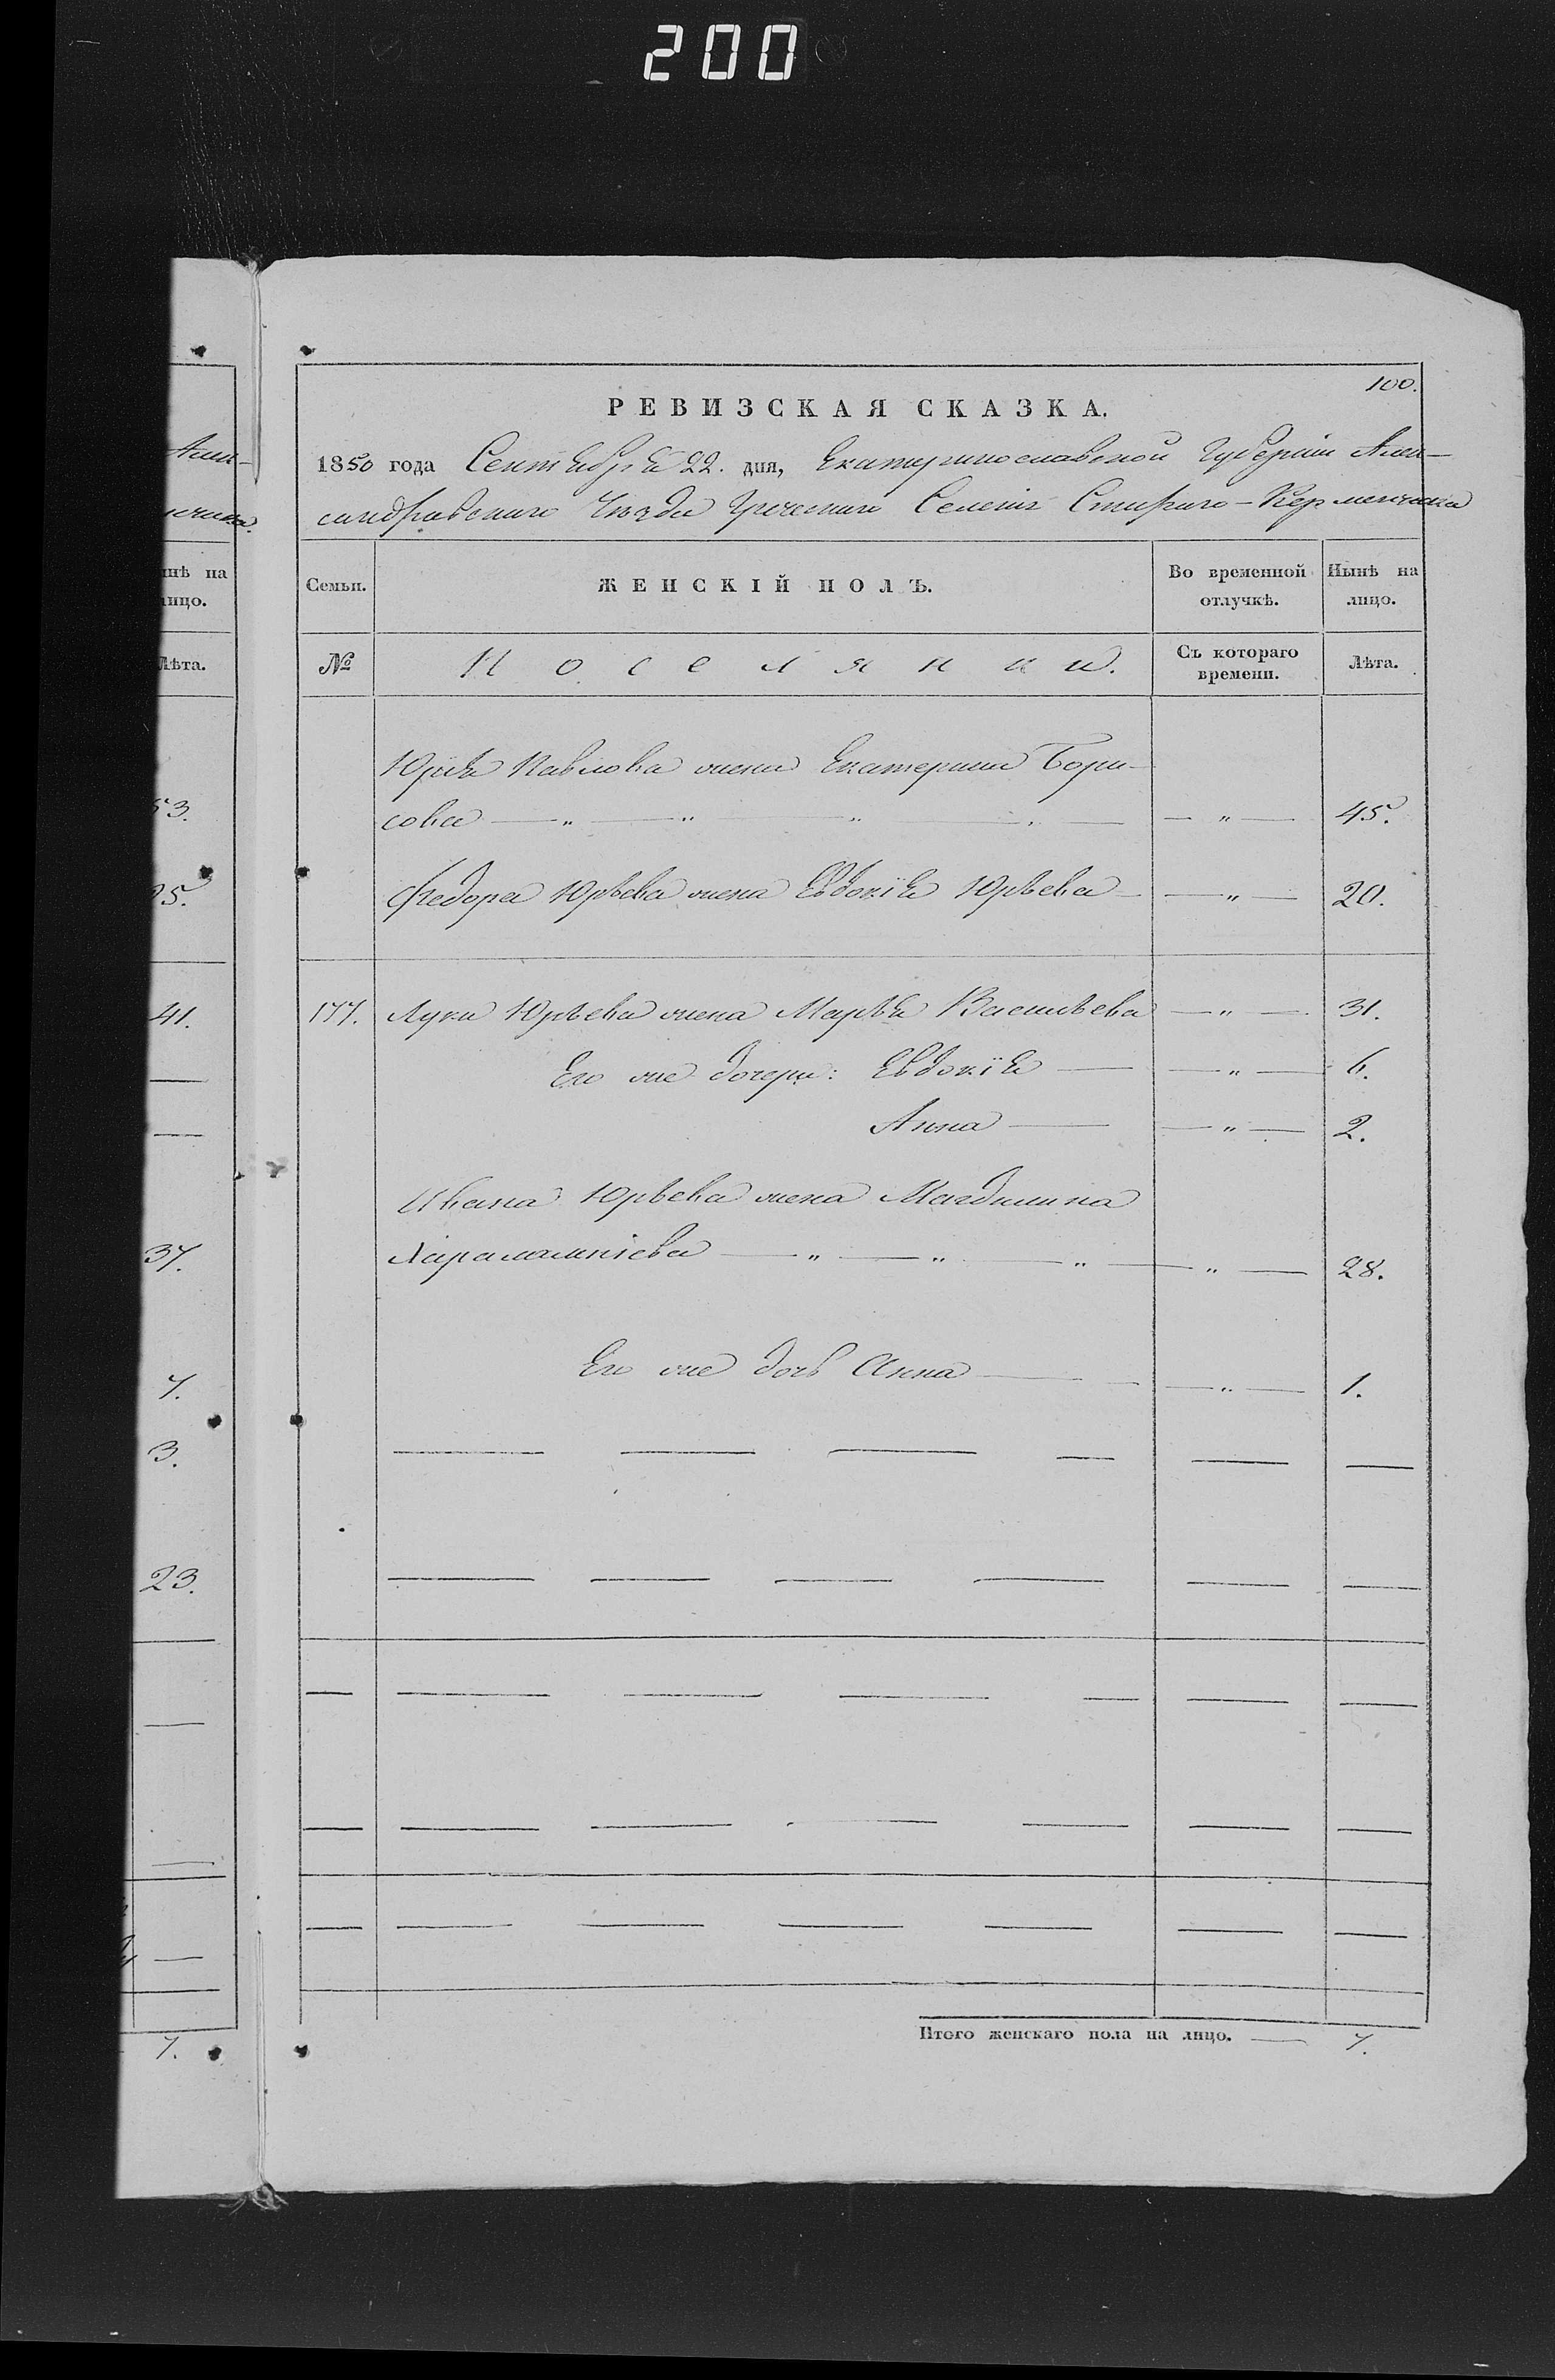 200
100.
РЕВИЗСКАЯ СКАЗКА.
1850 года Сентября 22. дня, Екатеринославской Губерніи Алек-
сандравскаго Уѣзда Греческаго Селенія Стараго-Керменчика
Семьи.
ЖЕНСКІЙ ПОЛЪ.
Во временной отлучкѣ.
Нынѣ на лицо.
№
Поселянки.
Съ котораго времени.
Лѣта.
Юрія Павлова жена Екатерина Бори-
сова — „ — „ — „ — „ — — „ — 45.
Федора Юрьева жена Евдокія Юрьева — — „ — 20.
177. Луки Юрьева жена Марья Васильева — „ — 31.
Его же дочери: Евдокія — — „ — 6.
Анна — — „ — 2.
Ивана Юрьева жена Магдалина
Харалампіева — „ — „ — „ — „ — 28.
Его же дочь Анна — — „ — 1.
Итого женскаго пола на лицо. — 7.
нѣ на
лицо.
Лѣта.
53.
25.
41.
37.
7.
3.
23.
7.